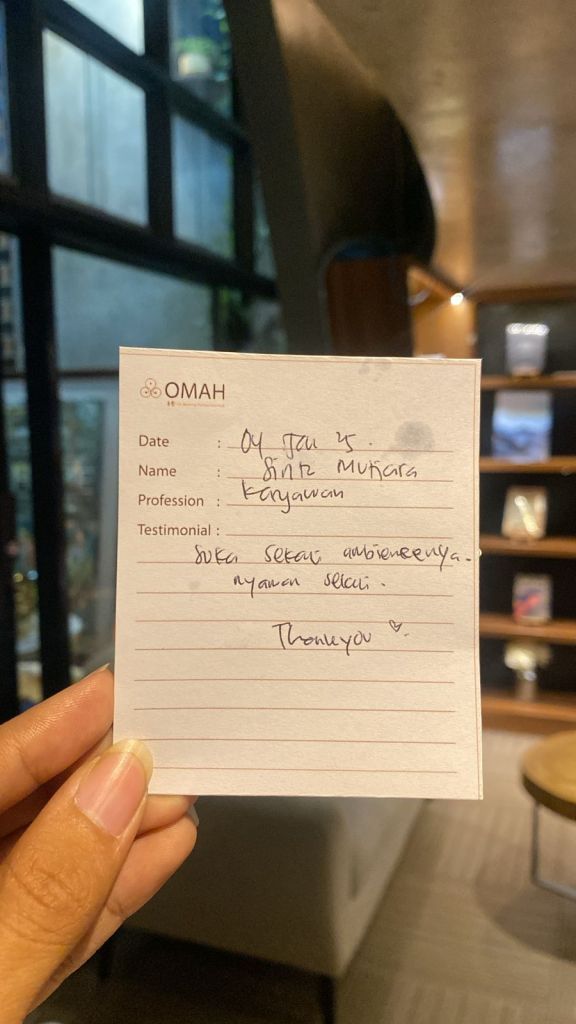 OMAH
Date : 04 Jan 25.
Name : Sinta Mutiara
Profession : Karyawan
Testimonial :
Suka sekali ambienceenya.
nyaman sekali.
Thankyou ♡.